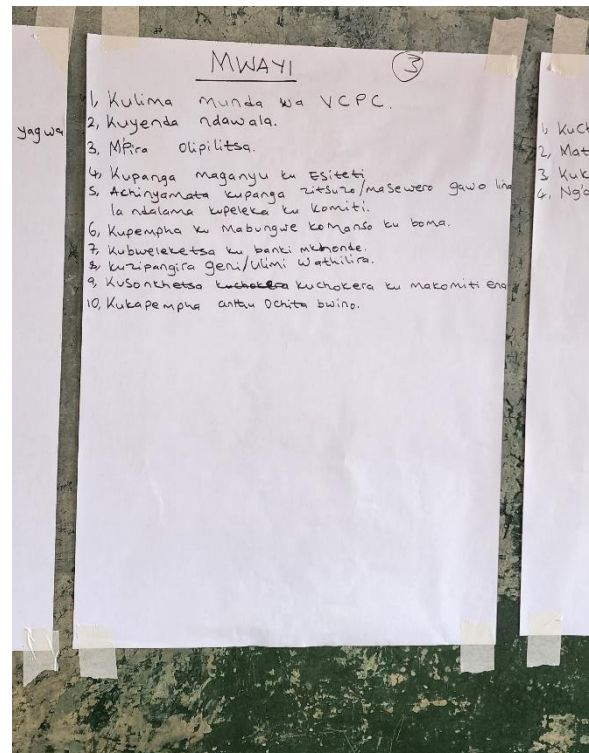 yagwa
MWAYI
3
1, Kulima munda wa VCPC.
2, Kuyenda ndawala.
3, Mpira olipilitsa.
4, Kupanga maganyu ku Esiteti
5, Achinyamata kupanga zitsuzo/masewero gawo lina
la ndalama kupeleka ku komiti.
6, Kupempha ku Mabungwe komanso ku boma.
7, Kubweleketsa ku banki mkhonde.
8, kuzipangira geni/ulimi wathilira.
9, Kusonkhetsa kuchokera kuchokera ku makomiti ena
10, Kukapempha anthu ochita bwino.
1, Kuch
2, Mat
3, Kuk
4, Ng'o